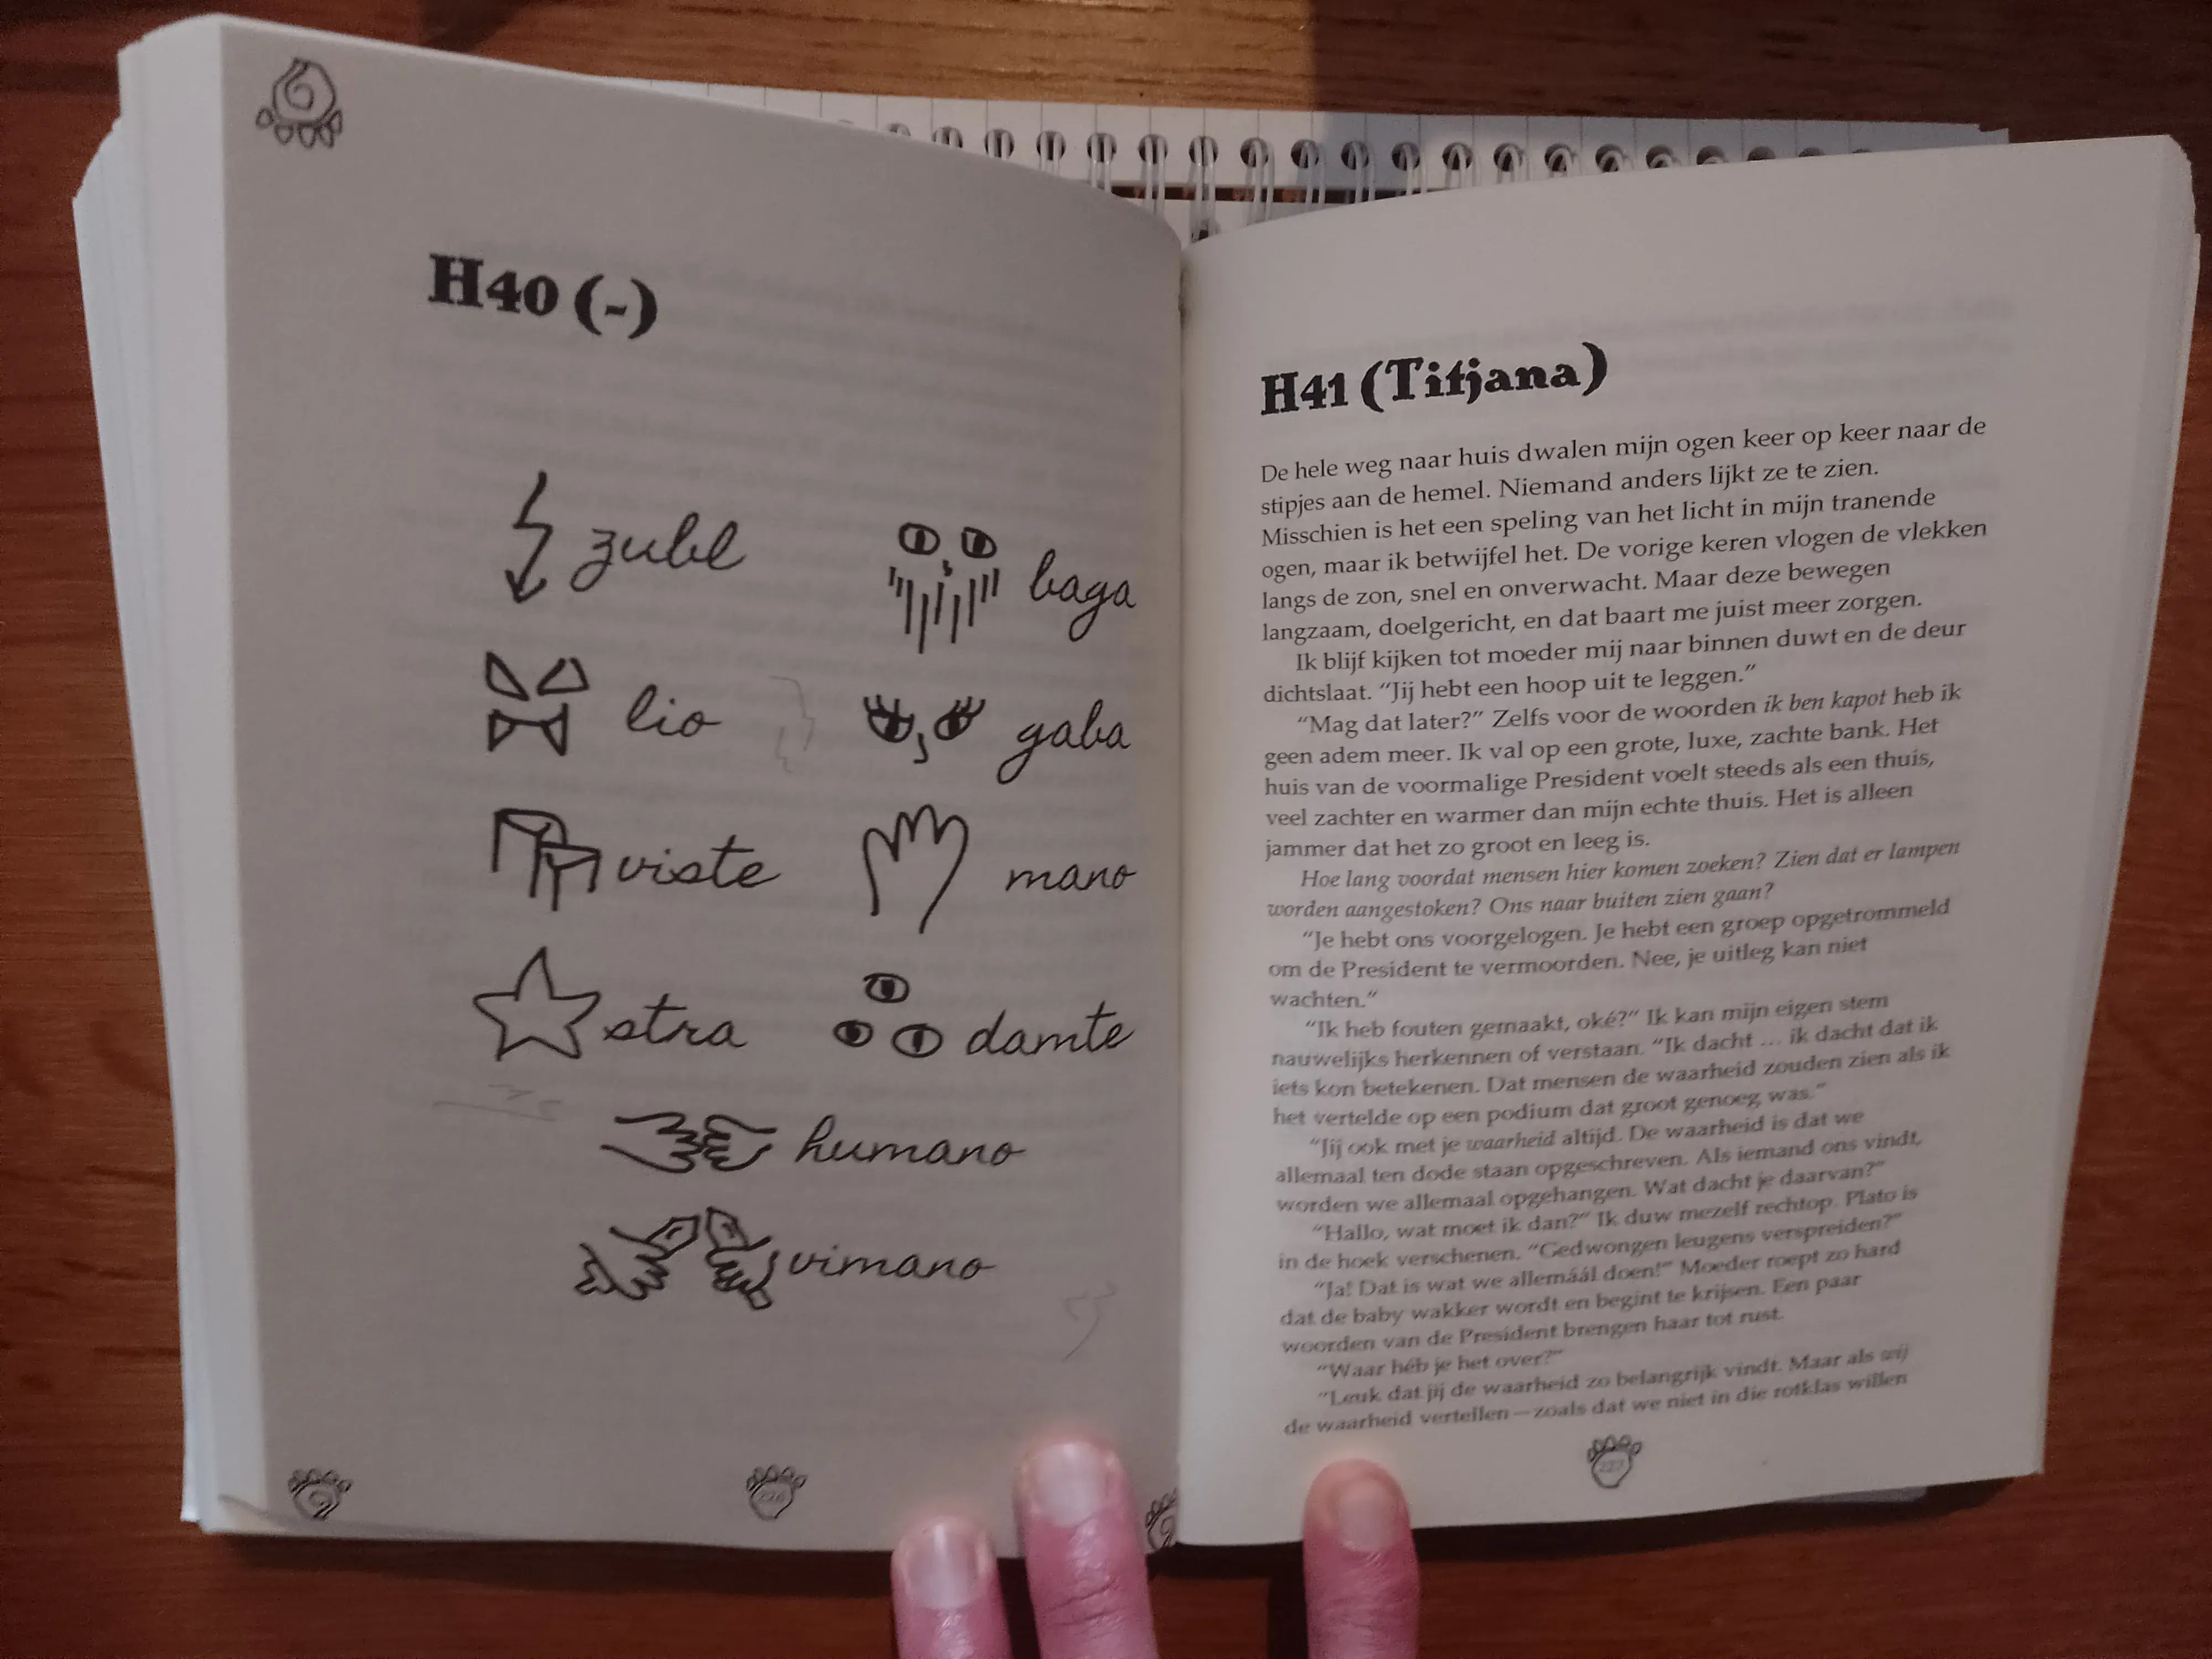 H40 (-)
zubl
baga
lio
gaba
viste
mano
stra
damte
humano
vimano
226
H41 (Titjana)
De hele weg naar huis dwalen mijn ogen keer op keer naar de
stipjes aan de hemel. Niemand anders lijkt ze te zien.
Misschien is het een speling van het licht in mijn tranende
ogen, maar ik betwijfel het. De vorige keren vlogen de vlekken
langs de zon, snel en onverwacht. Maar deze bewegen
langzaam, doelgericht, en dat baart me juist meer zorgen.
Ik blijf kijken tot moeder mij naar binnen duwt en de deur
dichtslaat. “Jij hebt een hoop uit te leggen.”
“Mag dat later?” Zelfs voor de woorden ik ben kapot heb ik
geen adem meer. Ik val op een grote, luxe, zachte bank. Het
huis van de voormalige President voelt steeds als een thuis,
veel zachter en warmer dan mijn echte thuis. Het is alleen
jammer dat het zo groot en leeg is.
Hoe lang voordat mensen hier komen zoeken? Zien dat er lampen
worden aangestoken? Ons naar buiten zien gaan?
“Je hebt ons voorgelogen. Je hebt een groep opgetrommeld
om de President te vermoorden. Nee, je uitleg kan niet
wachten.”
“Ik heb fouten gemaakt, oké?” Ik kan mijn eigen stem
nauwelijks herkennen of verstaan. “Ik dacht … ik dacht dat ik
iets kon betekenen. Dat mensen de waarheid zouden zien als ik
het vertelde op een podium dat groot genoeg was.”
“Jij ook met je waarheid altijd. De waarheid is dat we
allemaal ten dode staan opgeschreven. Als iemand ons vindt,
worden we allemaal opgehangen. Wat dacht je daarvan?”
“Hallo, wat moet ik dan?” Ik duw mezelf rechtop. Plato is
in de hoek verschenen. “Gedwongen leugens verspreiden?”
“Ja! Dat is wat we allemáál doen!” Moeder roept zo hard
dat de baby wakker wordt en begint te krijsen. Een paar
woorden van de President brengen haar tot rust.
“Waar héb je het over?”
“Leuk dat jij de waarheid zo belangrijk vindt. Maar als wij
de waarheid vertellen—zoals dat we niet in die rotklas willen
227